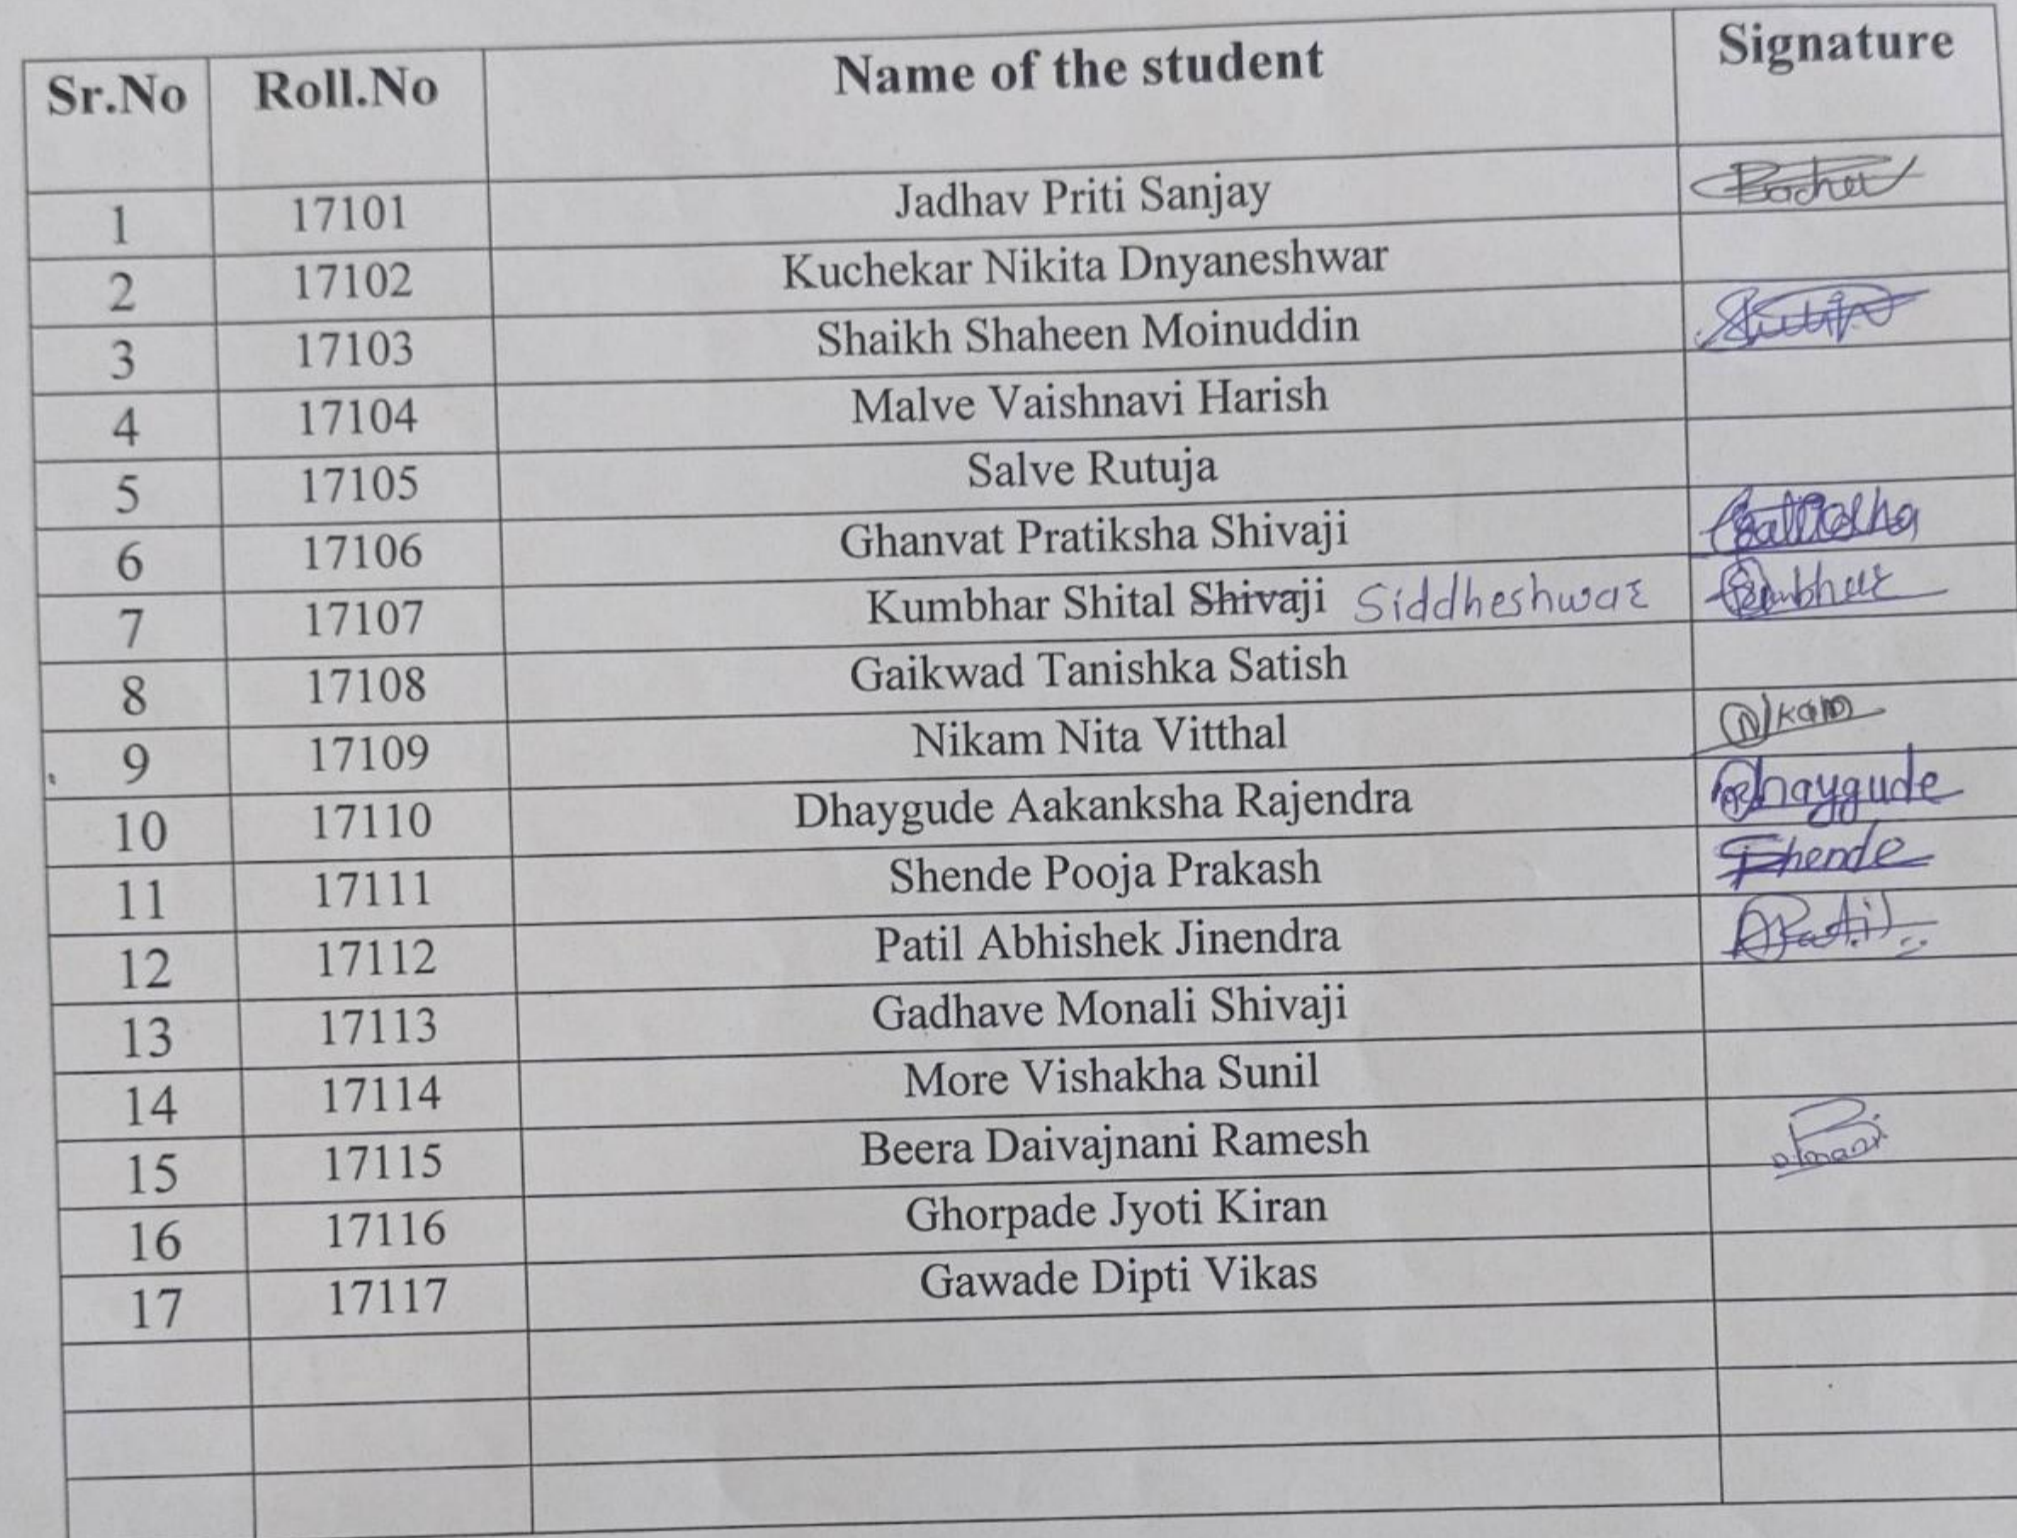 Sr.No Roll.No Name of the student Signature
1 17101 Jadhav Priti Sanjay
2 17102 Kuchekar Nikita Dnyaneshwar
3 17103 Shaikh Shaheen Moinuddin
4 17104 Malve Vaishnavi Harish
5 17105 Salve Rutuja
6 17106 Ghanvat Pratiksha Shivaji
7 17107 Kumbhar Shital Shivaji Siddheshwar Kumbhar
8 17108 Gaikwad Tanishka Satish
9 17109 Nikam Nita Vitthal Nikam
10 17110 Dhaygude Aakanksha Rajendra Dhaygude
11 17111 Shende Pooja Prakash Shende
12 17112 Patil Abhishek Jinendra APatil
13 17113 Gadhave Monali Shivaji
14 17114 More Vishakha Sunil
15 17115 Beera Daivajnani Ramesh
16 17116 Ghorpade Jyoti Kiran
17 17117 Gawade Dipti Vikas